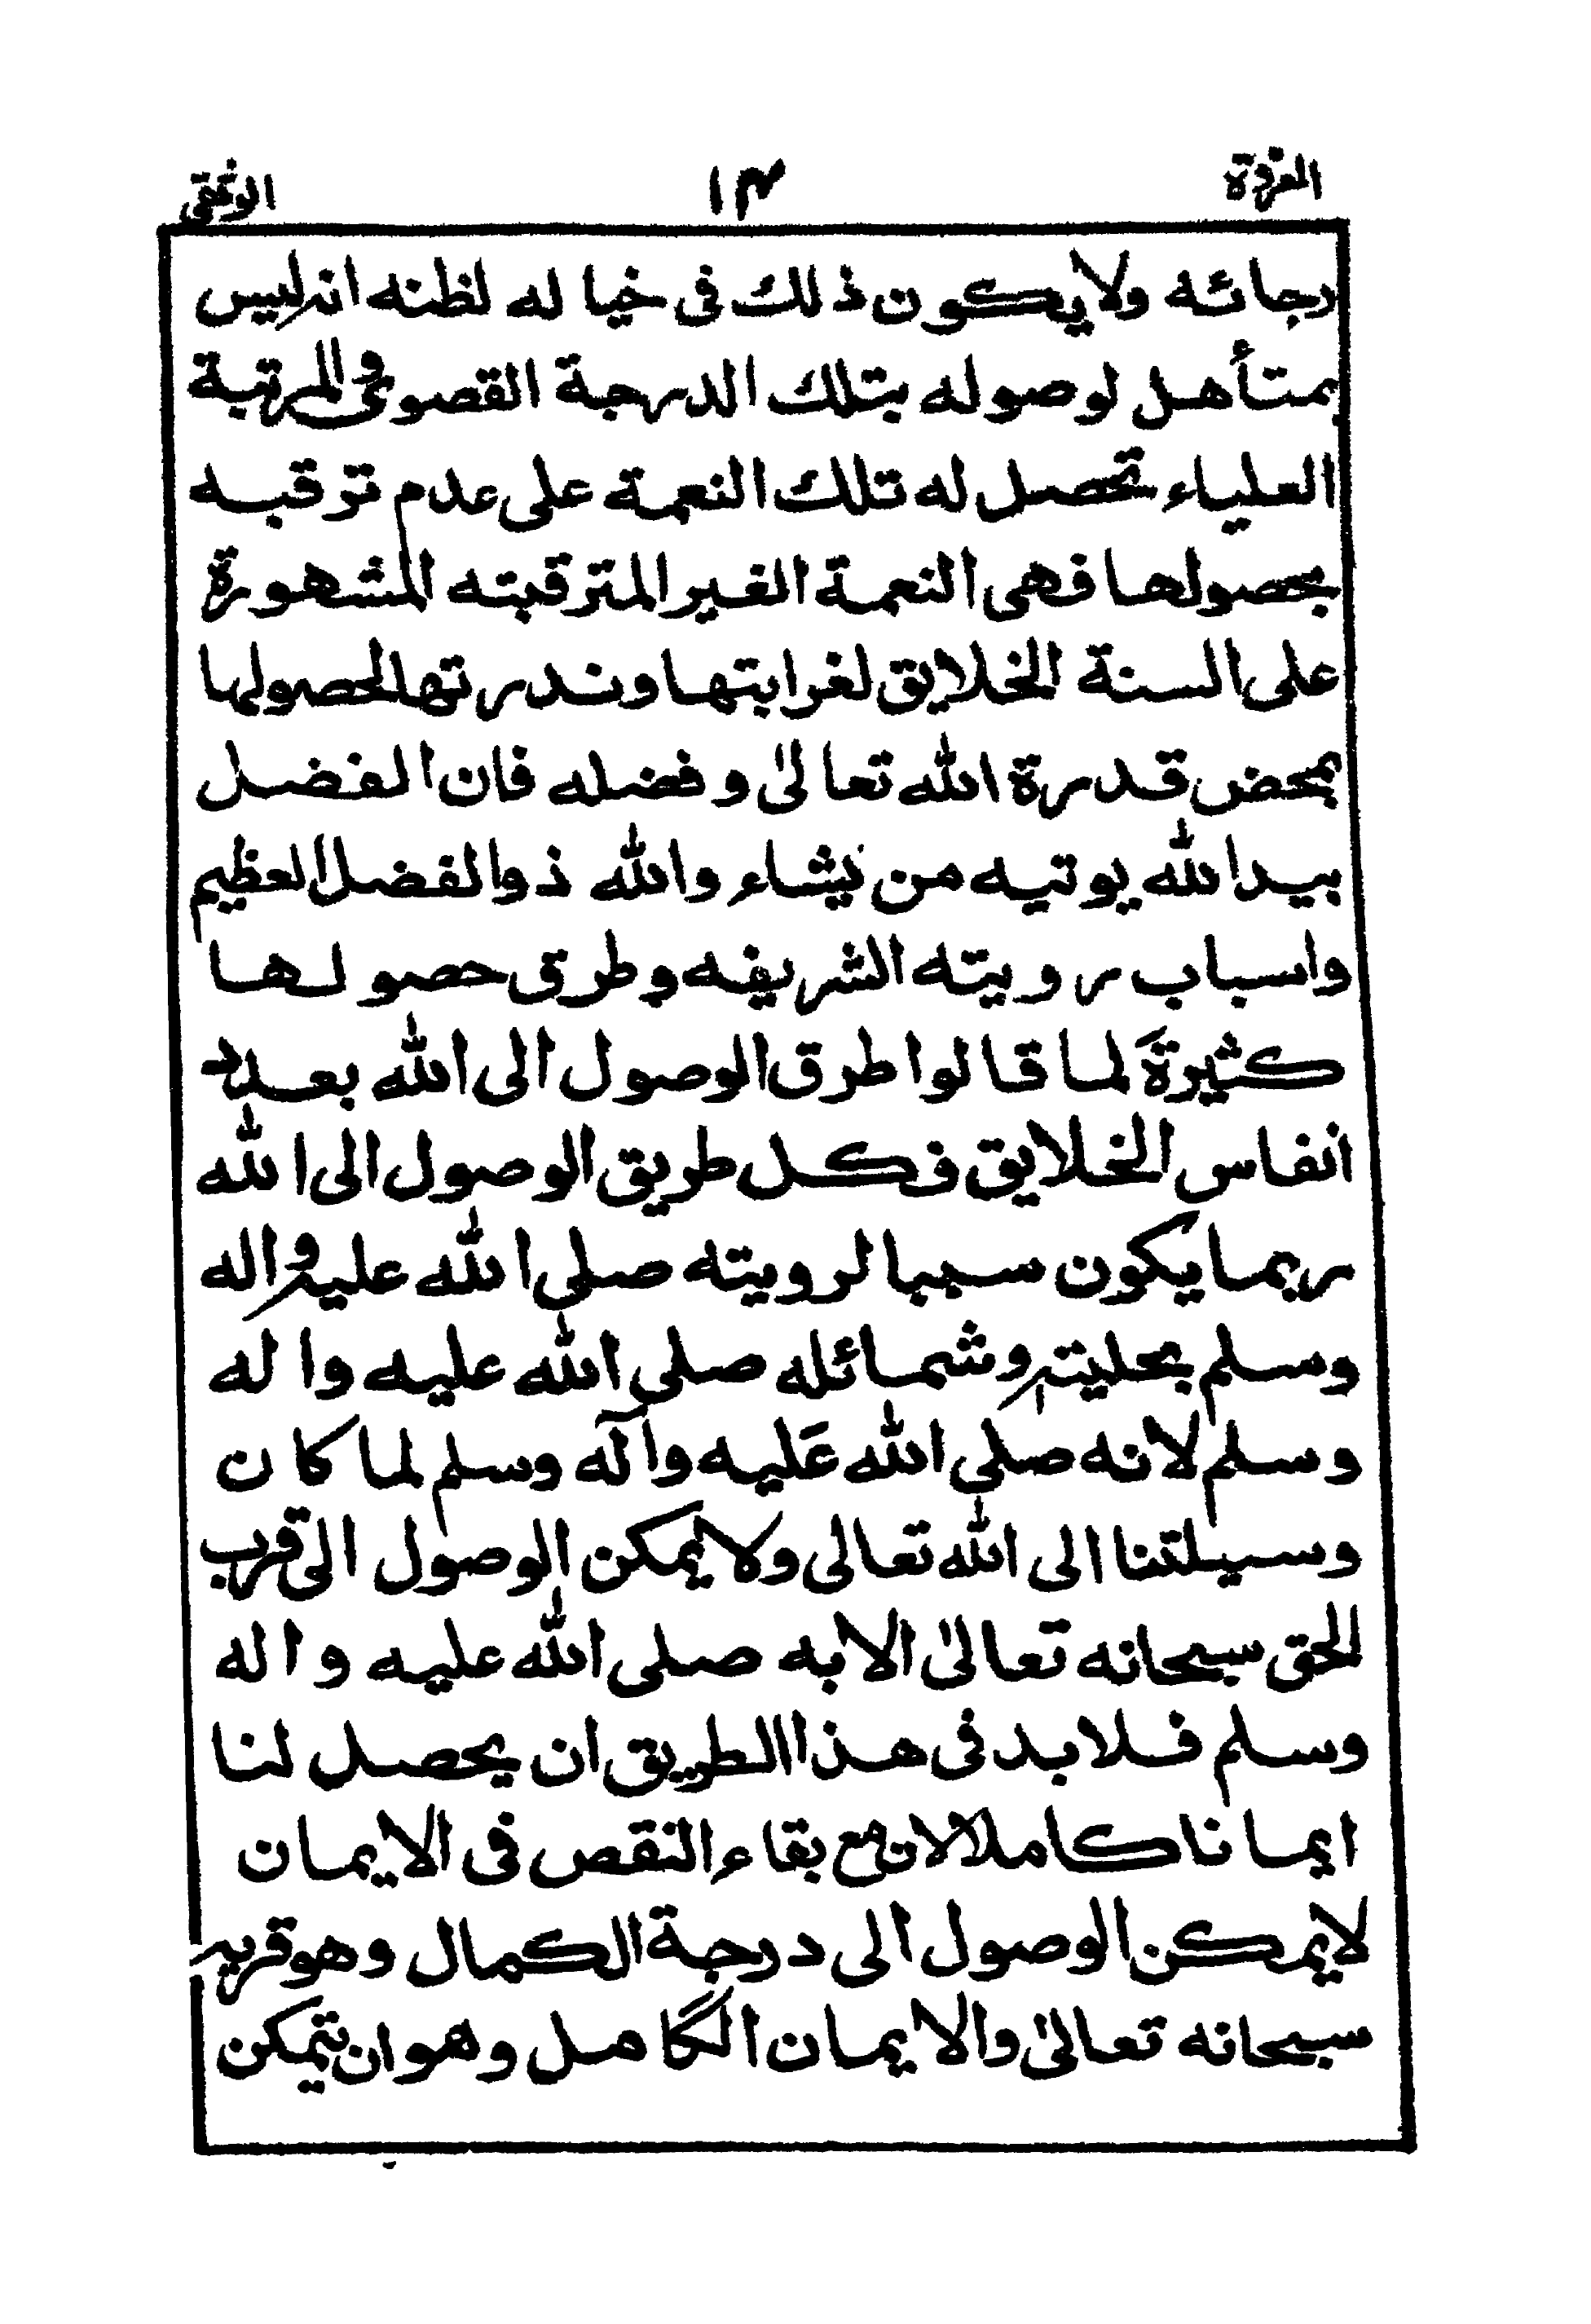 المفردة ١٣ الوثقى
رجائه ولا يكون ذلك فى خيا له لظنه انه ليس
بمتأهل لوصوله بتلك الدرجة القصوى والمرتبة
العلياء تحصل له تلك النعمة على عدم ترقبه
بحصولها فهى النعمة الغير المترقبته المشهورة
على السنة الخلايق لغرابتها وندرتها لحصولها
بمحض قدرة الله تعالىٰ وفضله فان الفضل
بيد الله يوتيه من يشاء والله ذوالفضل العظيم
واسباب رويته الشريفه وطرق حصولها
كثيرةَ لما قالوا طرق الوصول الى الله بعدد
انفاس الخلايق فكل طريق الوصول الى الله
ربما يكون سببا لرويته صلى الله عليه واله
وسلم بحليته وشمائله صلى الله عليه واله
وسلم لانه صلى الله عَليه وآله وسلم لما كان
وسيلتنا الى الله تعالى ولا يمكن الوصول الى قرب
الحق سبحانه تعالىٰ الا به صلى الله عليه واله
وسلم فلا بد فى هذا الطريق ان يحصل لنا
ايمانا كاملا لان مع بقاء النقص فى الايمان
لا يمكن الوصول الى درجة الكمال وهو قربه
سبحانه تعالىٰ والايمان الكامل وهو ان يتمكن